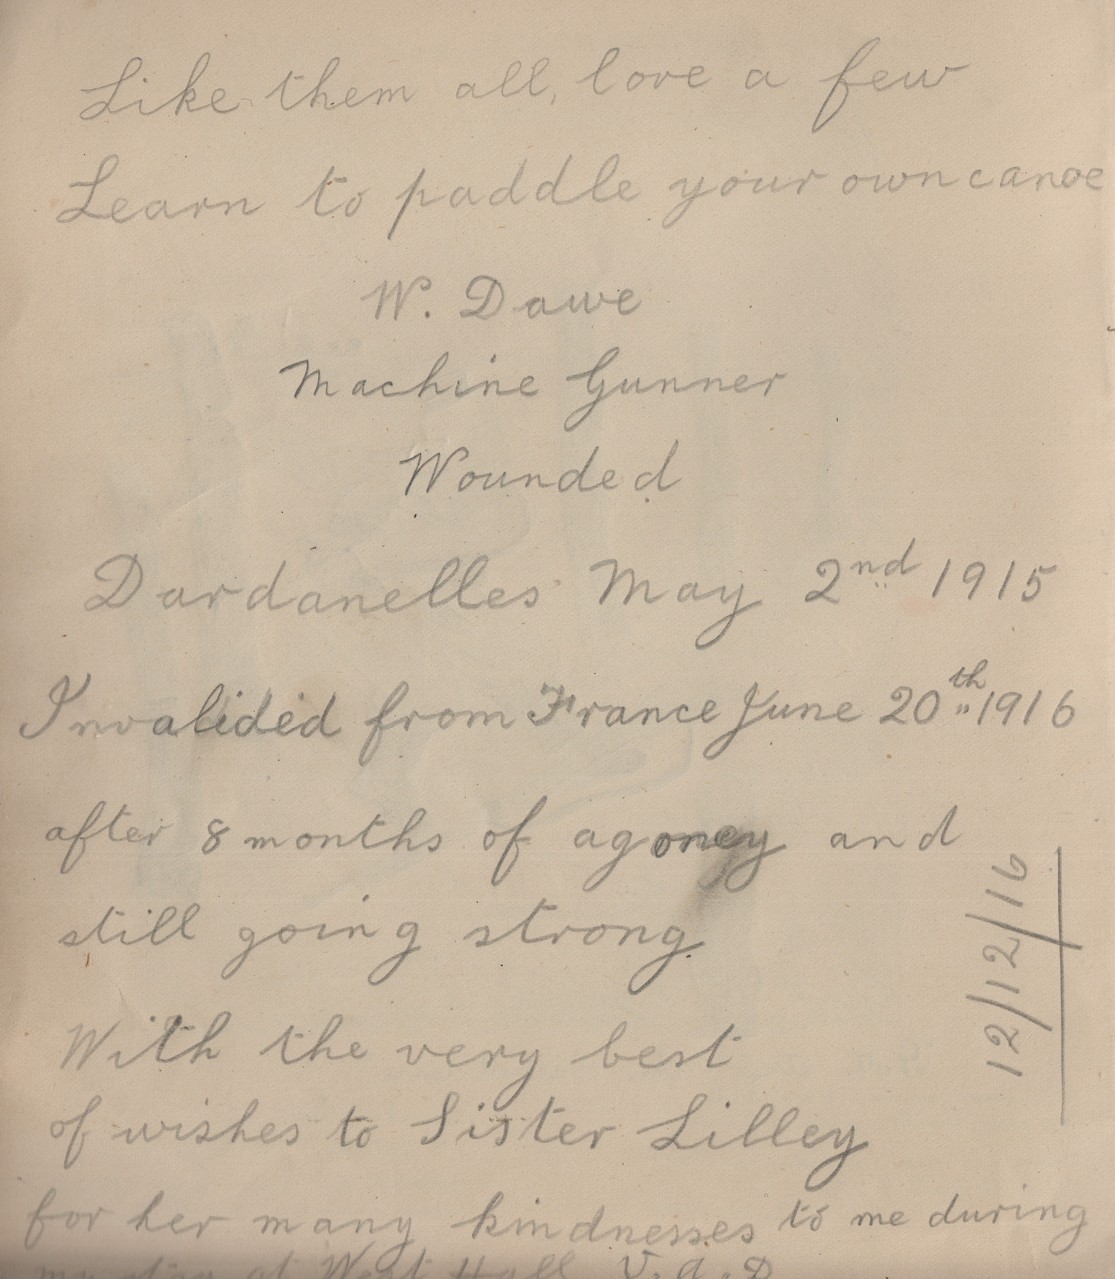 Like them all, love a few
Learn to paddle your own canoe
W. Dawe
Machine Gunner
Wounded
Dardanelles May 2nd 1915
Invalided from France June 20th 1916
after 8 months of agoney and
still going strong.
12/12/16
With the very best
of wishes to Sister Lilley
for her many kindnesses to me during
my stay at West Hall V.A.D